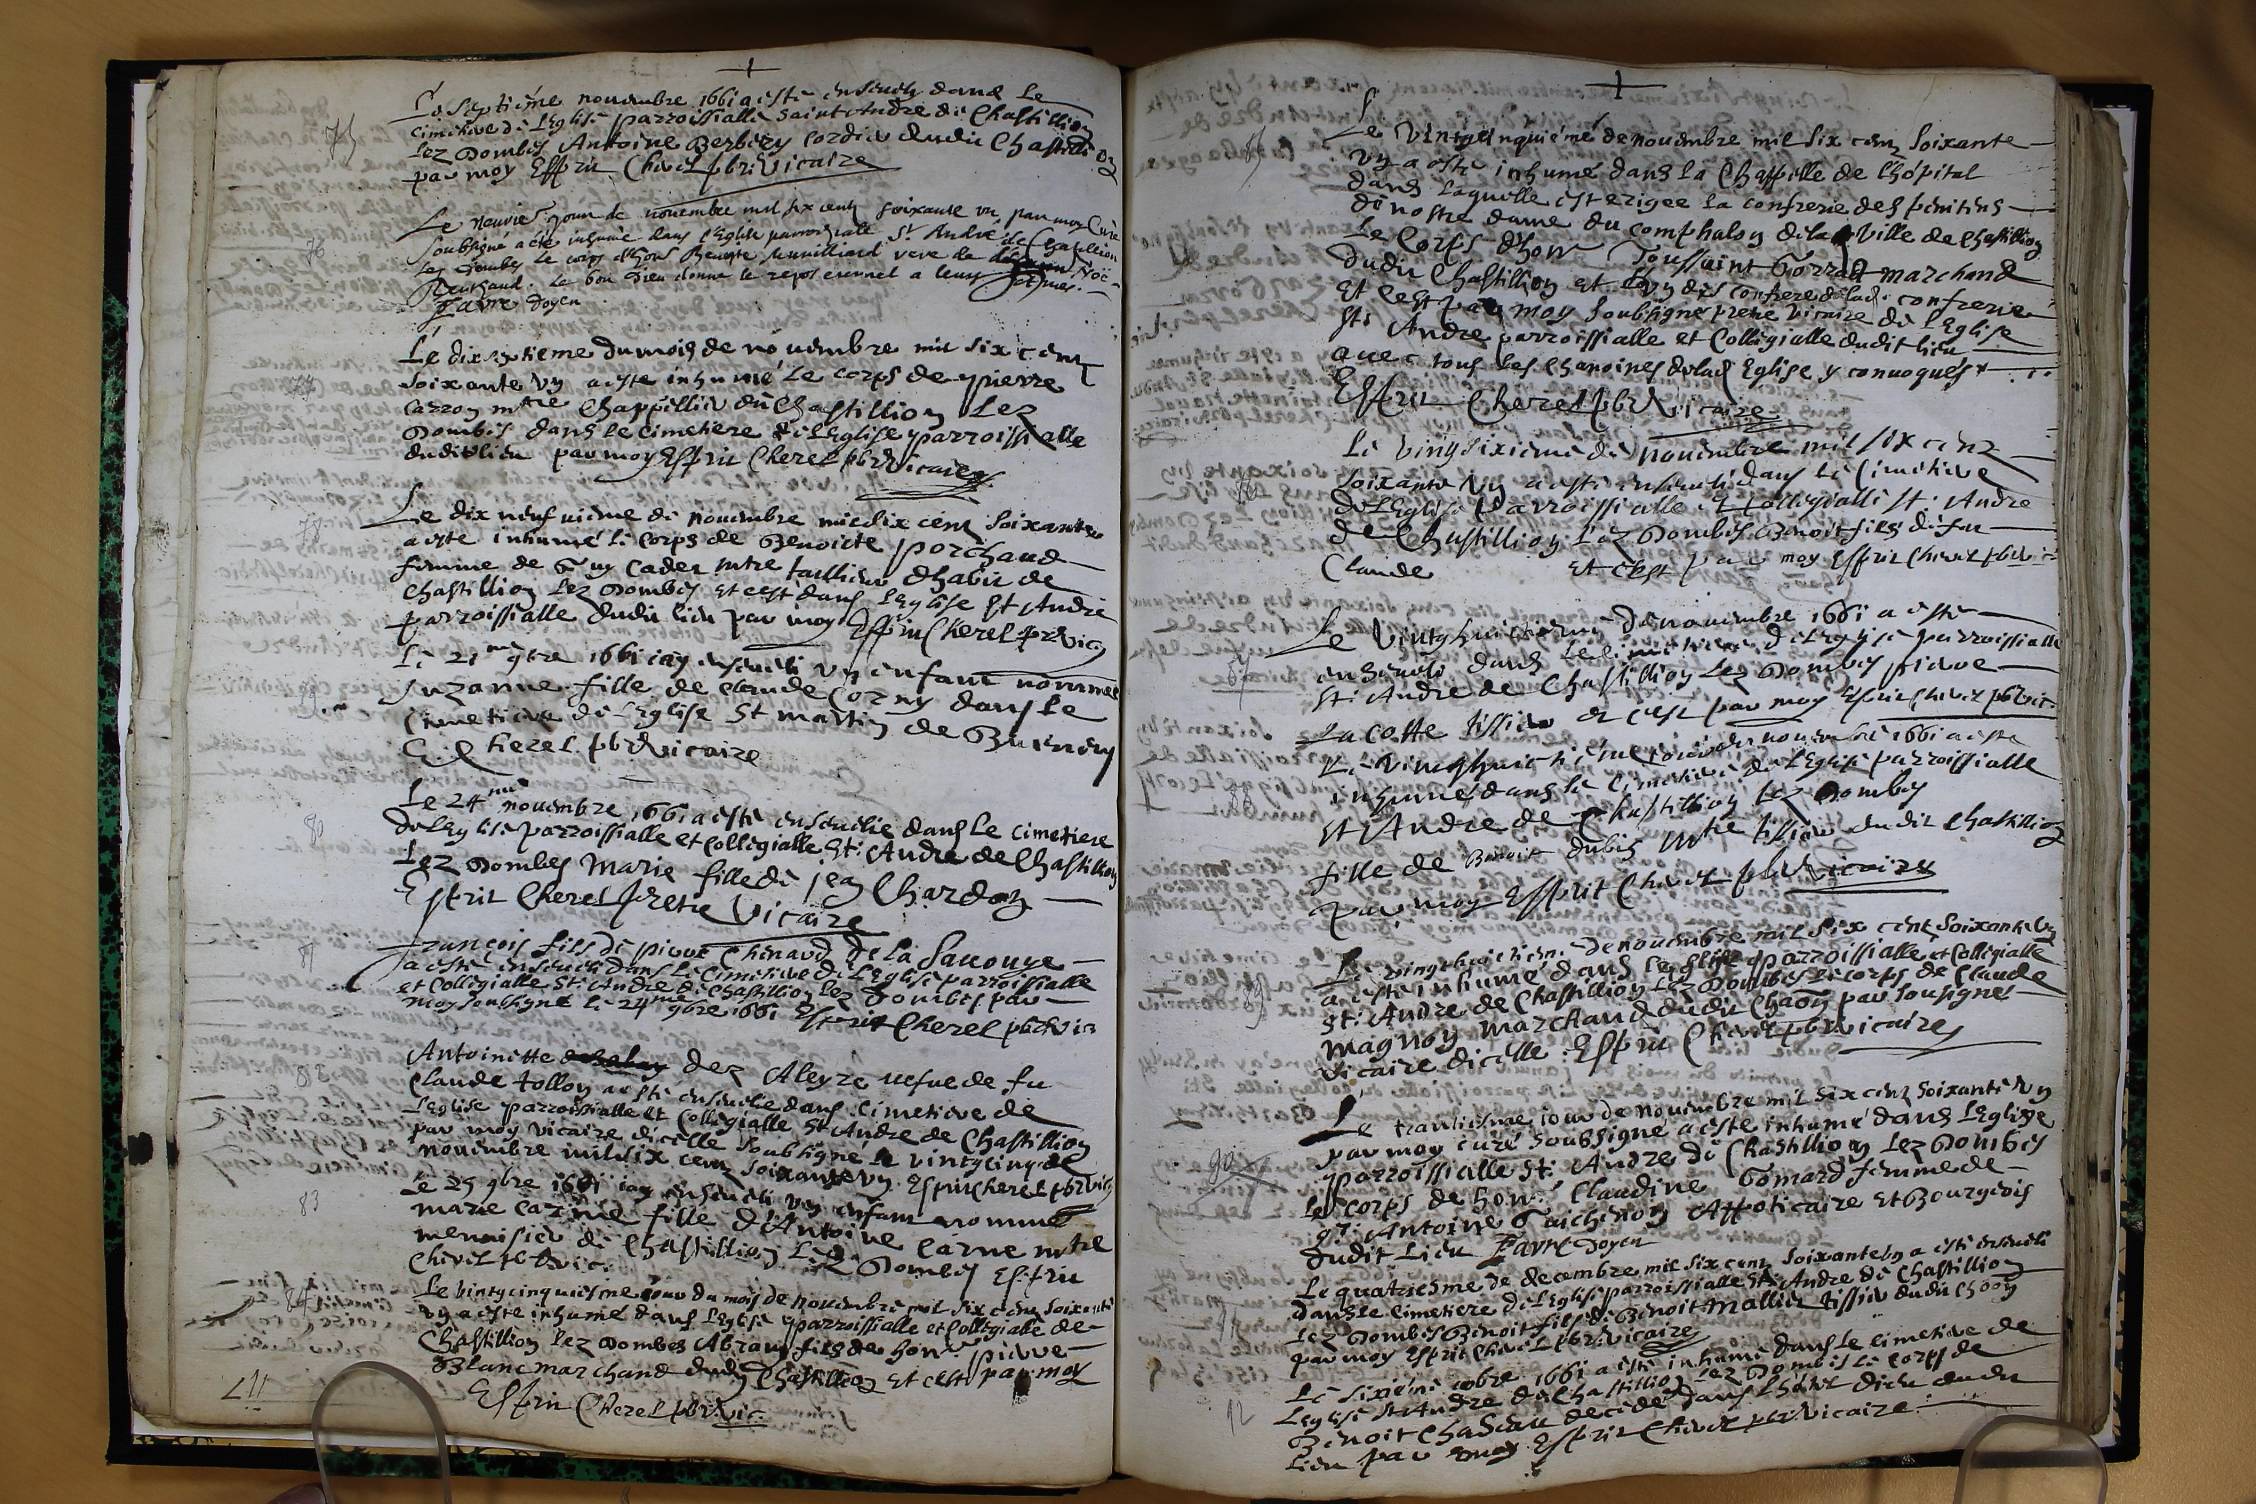 75
Le septiéme nouembre 1661 a esté enseuely dans le
cimetiere de L'Eglise parroissialle Saint Andre de Chastillion
Lez Dombes Antoine Berbery cordier dudit Chastillion
par moy Esprit Cherel pbr Vicaire
76
Le neuvie jour de novembre mil six cent soixante un par moy Curé
soubsigné a été inhumé dans l'Eglise parroissiale St André de Chatillion
les Dombes le corps d'hon Benoiste veve de Noé
le bon Dieu donne le repos eternel a leurs
Favre Doyen
77
Le dixseptieme du mois de nouembre mil six cent
soixante vn a este inhumé Le corps de pierre
Carron mtre Chappellier du Chastillion Lez
Dombes dans le cimetiere de L'Eglise parroissialle
dudit lieu par moy Esprit Cherel pbr Vicaire
78
Le dix neufuieme de nouembre mil six cent soixante
a este inhumé le corps de Benoicte porchand
femme de Guy Cader mtre tailleur d'habit de
Chastillion Lez Dombes et c'est dans L'Eglise St Andre
parroissialle dudit lieu par moy Esprit Cherel pbr vic
79
Le 21me 9bre 1661 iay enseueli vn enfant nommee
Suzanne fille de Claude Corny dans le
Cimetiere de L'Eglise St Martin de Buenens
E. Cherel pbr Vicaire
80
Le 24me nouembre 1661 a esté enseuelie dans le cimetiere
de L'Eglise parroissialle et Collegialle St Andre de Chastillion
Lez Dombes Marie fille de Jean Chardon
Esprit Cherel Pretre Vicaire
81
François fils de pierre Chenaud de la Sauouye
a esté enseueli dans le Cimetiere de L'Eglise parroissialle
et Collegialle St Andre de Chastillion Lez Dombes par
moy soussigné le 24me 9bre 1661 Esprit Cherel pbr Vic
82
Antoinette dez Aleyze vefue de fu
Claude tollon a esté enseuelie dans cimetiere de
L'eglise parroissialle et Collegialle St Andre de Chastillion
par moy vicaire d'icelle soubsigne le vintycinq de
nouembre mil six cent soixante vn Esprit Cherel pbr vic
83
Le 25 9bre 1661 iay enseueli vn enfant nommé
marie Carne fille d'Antoine Carne mtre
menuisier de Chastillion Lez Dombes Esprit
Cherel pbr vic.
84
Le vintycinquiesme iour du mois de nouembre mil six cent soixante
vn a este inhumé dans L'eglise parroissialle et Collegialle de
Chastillion Lez Dombes Abram fils de hon pierre
Blanc marchand dudit Chastillion et c'est par moy
Esprit Cherel pbr vic.
85
Le Vintycinquiémé de nouembre mil six cent soixante
vn a esté inhumé dans la Chappelle de l'hopital
dans laquelle est erigee la confrerie des penitens
de nostre dame du comphalon de la Ville de Chastillion
Le Corps d'hon Toussaint Gorrad marchand
dudit Chastillion et L'vn des confrere de lad confrerie
Et c'est par moy soubsigne pretre Vicaire de L'Eglise
St Andre parroissialle et Collegialle dudit lieu
auec tous les Chanoines de lad Eglise y conuoqués
Esprit Cherel pbr Vicaire
86
Le vingsixieme de nouembre mil six cent
soixante vn a esté enseueli dans le Cimetiere
de L'Eglise Parroissialle et Collegialle St Andre
de Chastillion Lez Dombes Benoit fils de fu
Claude et c'est par moy Esprit Cherel pbr vic
87
Le Vintyhuictieme de nouembre 1661 a esté
enseueli dans le cimetiere de L'Eglise parroissialle
St Andre de Chastillion Lez Dombes pierre
La coste tissier et c'est par moy Esprit Cherel pbr vic
88
Le vinghuictieme iour de nouembre 1661 a este
inhumé dans le Cimetiere de L'Eglise parroissialle
St Andre de Chastillion Lez Dombes
fille de Benoit dubis mtre tissier dudit Chastillion
par moy Esprit Cherel pbr Vicaire
89
Le vinghuictiem de nouembre mil six cent soixante vn
a este inhumé dans leglise parroissialle et Collegialle
St Andre de Chastillion Lez Dombes le corps de Claude
magnon marchand dudit Chaon par sousigné
Vicaire d'icelle Esprit Cherel pbr Vicaire
90
Le trantiesme iour de nouembre mil six cent soixante vn
par moy curé soubsigné a este inhumé dans L'Eglise
parroissialle St Andre de Chastillion Lez Dombes
Le Corps de hon Claudine Gomard femme de
Antoine Guichenon Appoticaire et Bourgeois
dudit Lieu Favre Doyen
91
Le quatriesme de decembre mil six cent soixante vn a esté enseueli
dans le Cimetiere de L'Eglise parroissialle St Andre de Chastillion
Lez Dombes Benoit fils de Benoit Mallier tissier dudit Chaon
par moy Esprit Cherel pbr Vicaire
92
Le sixiéme xbre 1661 a esté inhumé dans le cimetiere de
L'eglise St Andre de Chastillion Lez Dombes le corps de
Benoit Chasiau decedé dans l'hotel dieu dudit
lieu par moy Esprit Cherel pbr Vicaire